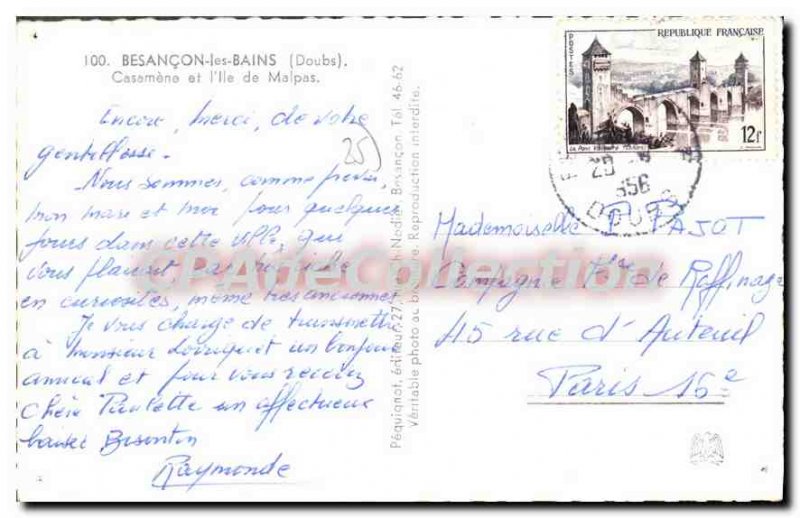 100. BESANÇON-les-BAINS (Doubs).
Casamène et l'Ile de Malpas.
Encore, merci, de votre
gentillesse.
25
Nous sommes, comme prévu,
mon mari et moi pour quelques
jours dans cette ville, qui
vous plairait par
en curiosités, même très anciennes.
Je vous charge de transmettre
à Monsieur un bonjour
amical et pour vous recevez
chère Paulette un affectueux
baiser Bisontin
Raymonde
Péquignot, éditeur, 27, Nodier, Besançon Tél. 46-62
Véritable photo au bromure. Reproduction interdite.
POSTES
REPUBLIQUE FRANÇAISE
12f
DOUBS
Mademoiselle P. PAJOT
Compagnie Fse de Raffinage
45 rue d'Auteuil
Paris 16e
CPAdeCollection